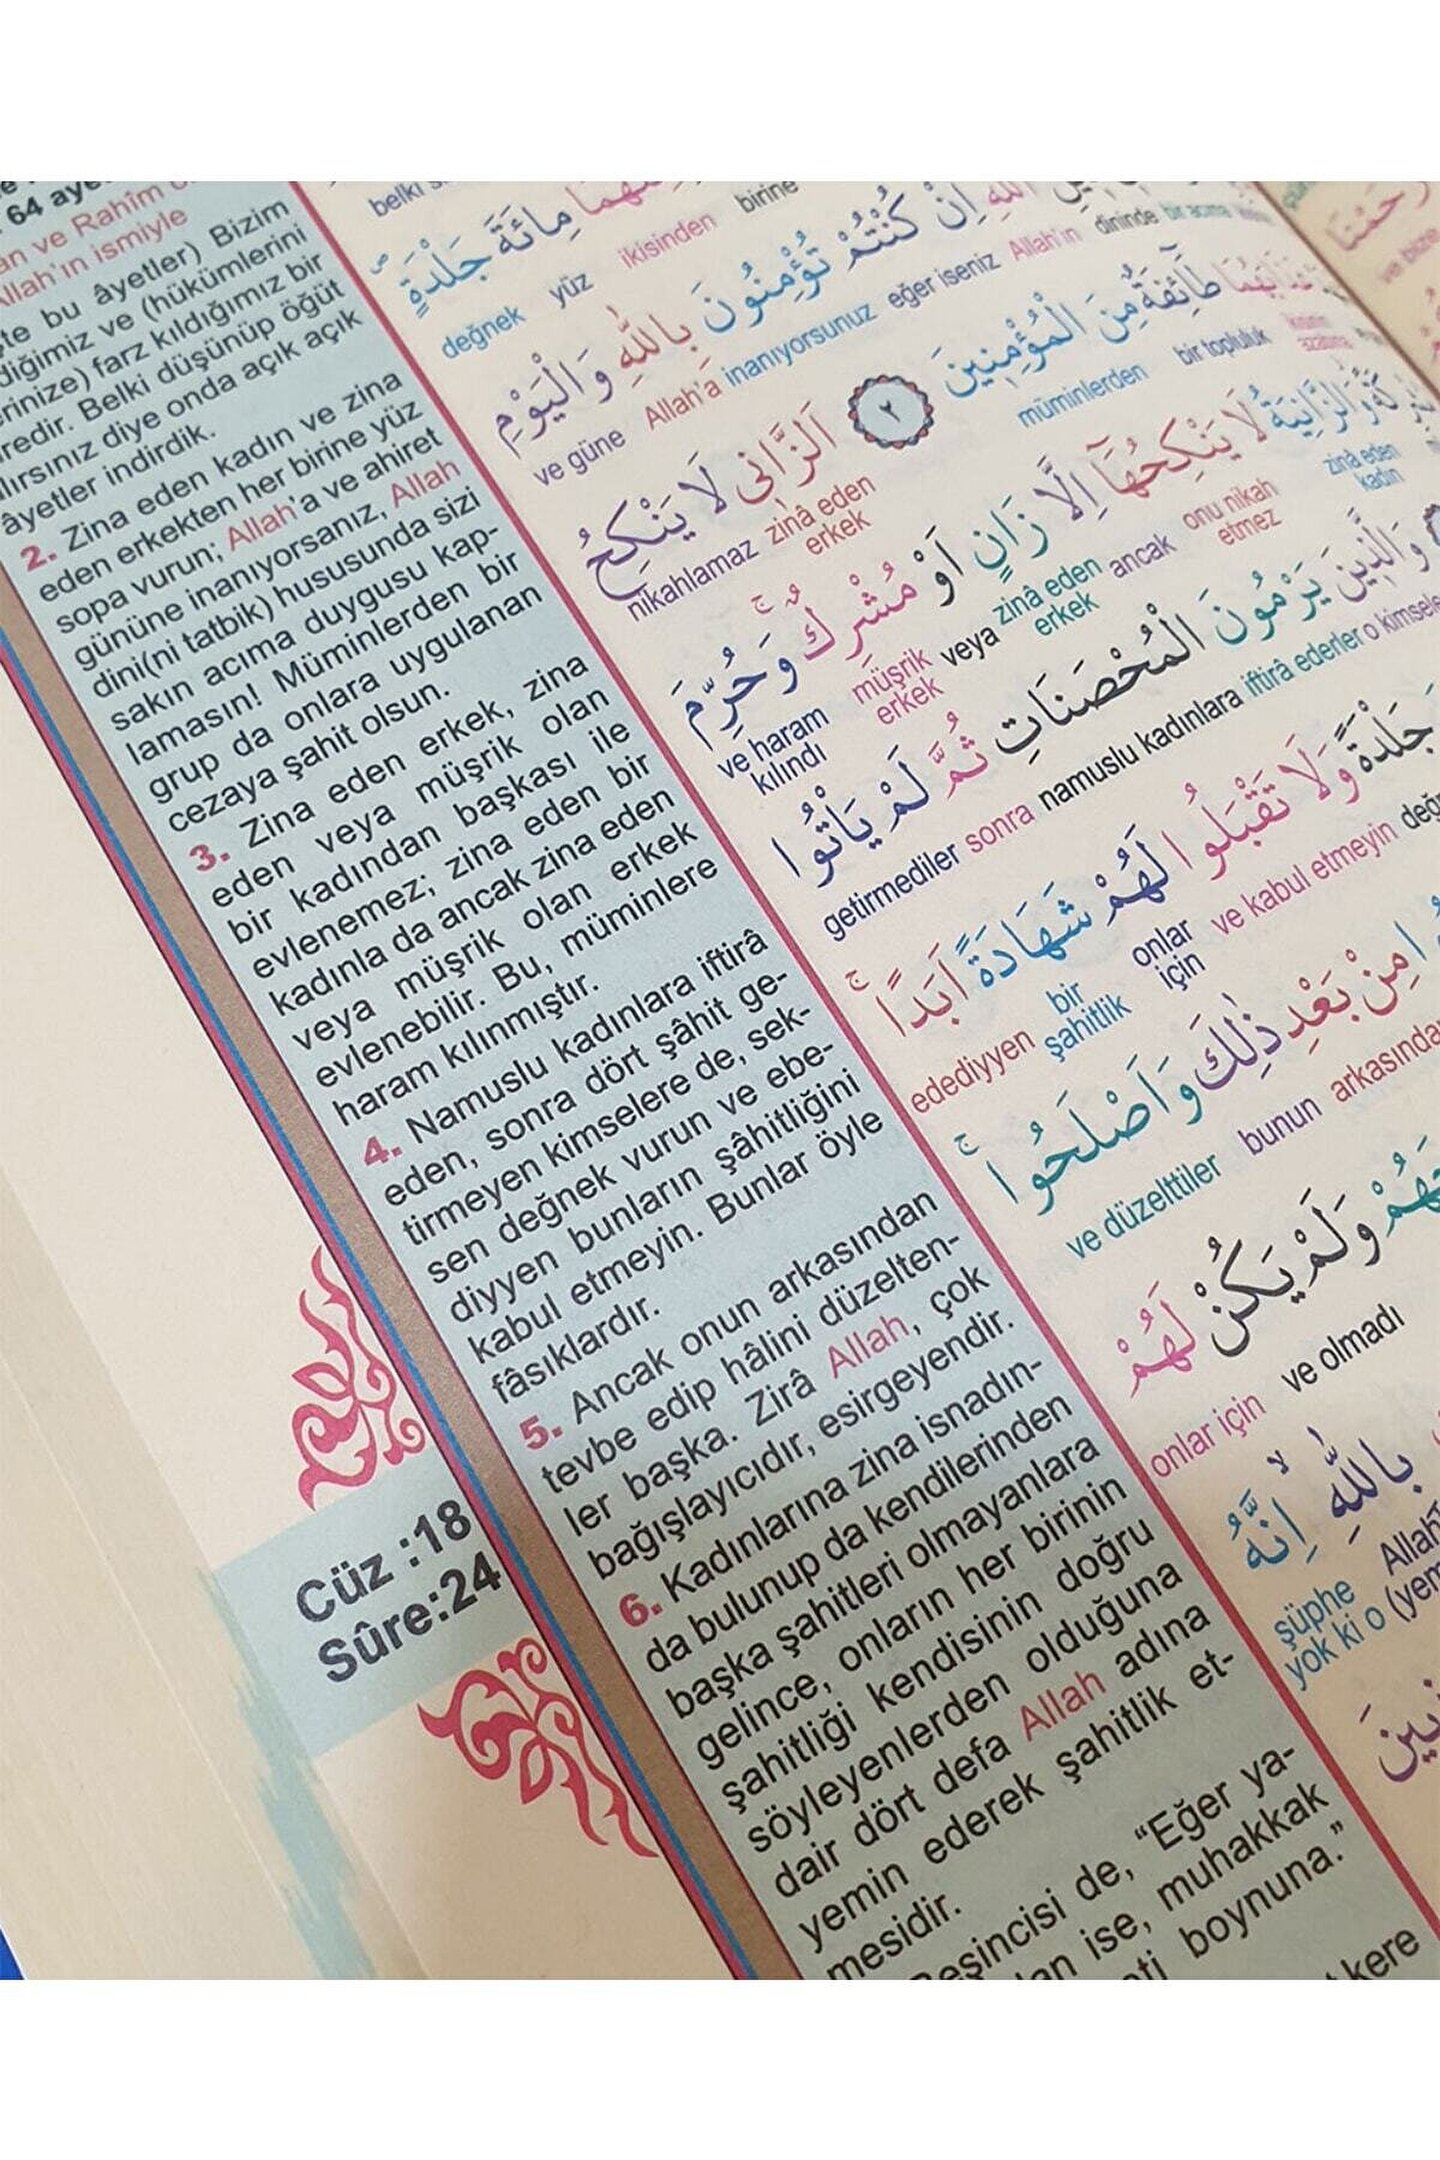 64 aye
an ve Rahîm
Allah'ın ismiyle
te bu âyetler) Bizim
diğimiz ve (hükümlerini
erinize) farz kıldığımız bir
redir. Belki düşünüp öğüt
lırsınız diye onda açık açık
âyetler indirdik.
2. Zina eden kadın ve zina
eden erkekten her birine yüz
sopa vurun; Allah'a ve ahiret
gününe inanıyorsanız, Allah
dini(ni tatbik) hususunda sizi
sakın acıma duygusu kap-
lamasın! Müminlerden bir
grup da onlara uygulanan
cezaya şahit olsun.
3. Zina eden erkek, zina
eden veya müşrik olan
bir kadından başkası ile
evlenemez; zina eden bir
kadınla da ancak zina eden
veya müşrik olan erkek
evlenebilir. Bu, müminlere
haram kılınmıştır.
4. Namuslu kadınlara iftirâ
eden, sonra dört şâhit ge-
tirmeyen kimselere de, sek-
sen değnek vurun ve ebe-
diyyen bunların şâhitliğini
kabul etmeyin. Bunlar öyle
fâsıklardır.
5. Ancak onun arkasından
tevbe edip hâlini düzelten-
ler başka. Zirâ Allah, çok
bağışlayıcıdır, esirgeyendir.
6. Kadınlarına zina isnadın-
da bulunup da kendilerinden
başka şahitleri olmayanlara
gelince, onların her birinin
şahitliği kendisinin doğru
söyleyenlerden olduğuna
dair dört defa Allah adına
yemin ederek şahitlik et-
mesidir.
Beşincisi de, “Eğer ya-
an ise, muhakkak
eti boynuna.”
kere
Cüz :18
Sûre:24
belki
مِائَةَ جَلْدَةٍ
birine ikisinden yüz değnek
اللّٰهِ اِنْ كُنْتُمْ تُؤْمِنُونَ بِاللّٰهِ وَالْيَوْمِ
dininde Allah'ın eğer iseniz inanıyorsunuz Allah'a ve güne
طَٓائِفَةٌ مِنَ الْمُؤْمِنٖينَ ٢ اَلزَّانٖى لَا يَنْكِحُ
bir topluluk müminlerden zinâ eden erkek nikahlamaz
وَالزَّانِيَةُ لَا يَنْكِحُهَٓا اِلَّا زَانٍ اَوْ مُشْرِكٌ وَحُرِّمَ
zinâ eden kadın onu nikah etmez ancak zinâ eden erkek veya müşrik erkek ve haram kılındı
وَالَّذٖينَ يَرْمُونَ الْمُحْصَنَاتِ ثُمَّ لَمْ يَأْتُوا
o kimsele iftirâ ederler namuslu kadınlara sonra getirmediler
جَلْدَةً وَلَا تَقْبَلُوا لَهُمْ شَهَادَةً اَبَدًا
değn ve kabul etmeyin onlar için bir şahitlik edediyyen
مِنْ بَعْدِ ذٰلِكَ وَاَصْلَحُوا
arkasından bunun ve düzelttiler
وَلَمْ يَكُنْ لَهُمْ
ve olmadı onlar için
بِاللّٰهِ اِنَّهُ
Allah şüphe yok ki o (yem